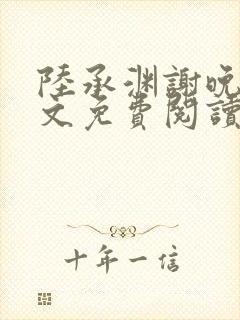 陸承淵謝晚
文免費閱讀
十年一信